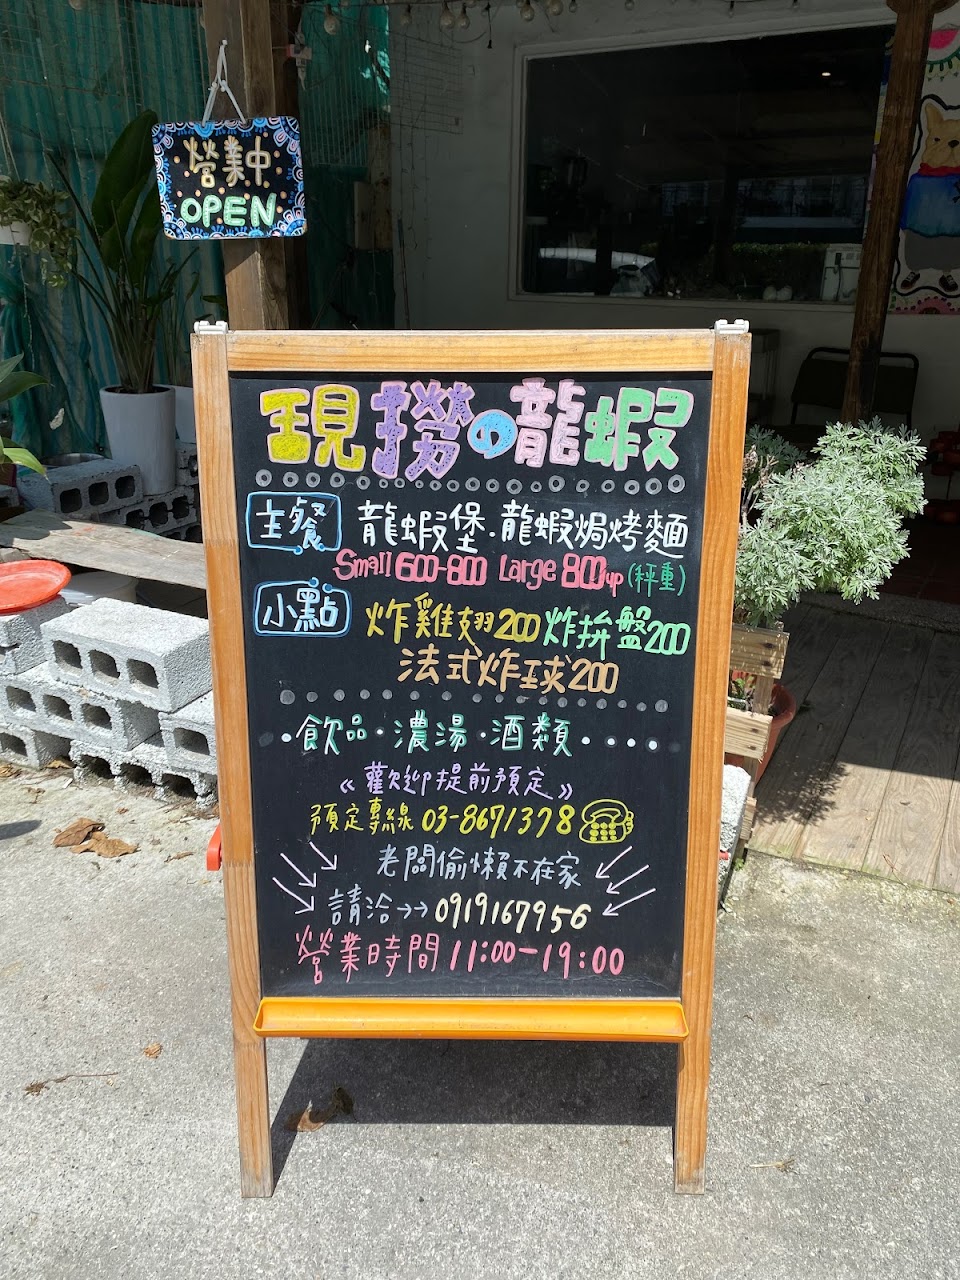 營業中
OPEN
現撈の龍蝦
主餐 龍蝦堡·龍蝦焗烤麵
Small 600-800 Large 800up (秤重)
小點 炸雞翅200 炸拚盤200
法式炸球200
·飲品·濃湯·酒類·
《歡迎提前預定》
預定專線 03-8671378
老闆偷懶不在家
請洽→→0919167956
營業時間 11:00-19:00